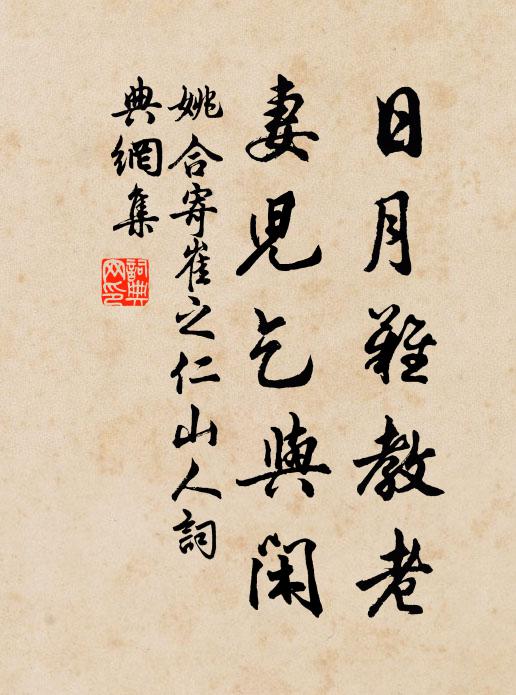 日月難教老
妻兒乞與閑
姚合寄崔之仁山人詞
典網集
詞典網印